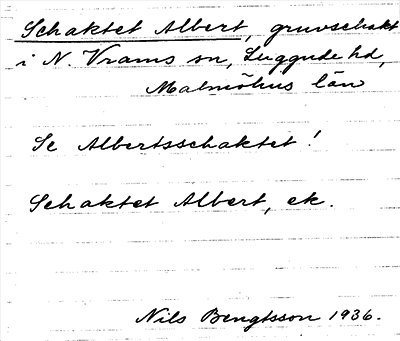 Schaktet Albert, gruvschakt
i N. Vrams sn, Luggude hd,
Malmöhus län
Se Albertsschaktet!
Schaktet Albert, ek.
Nils Bengtsson 1936.